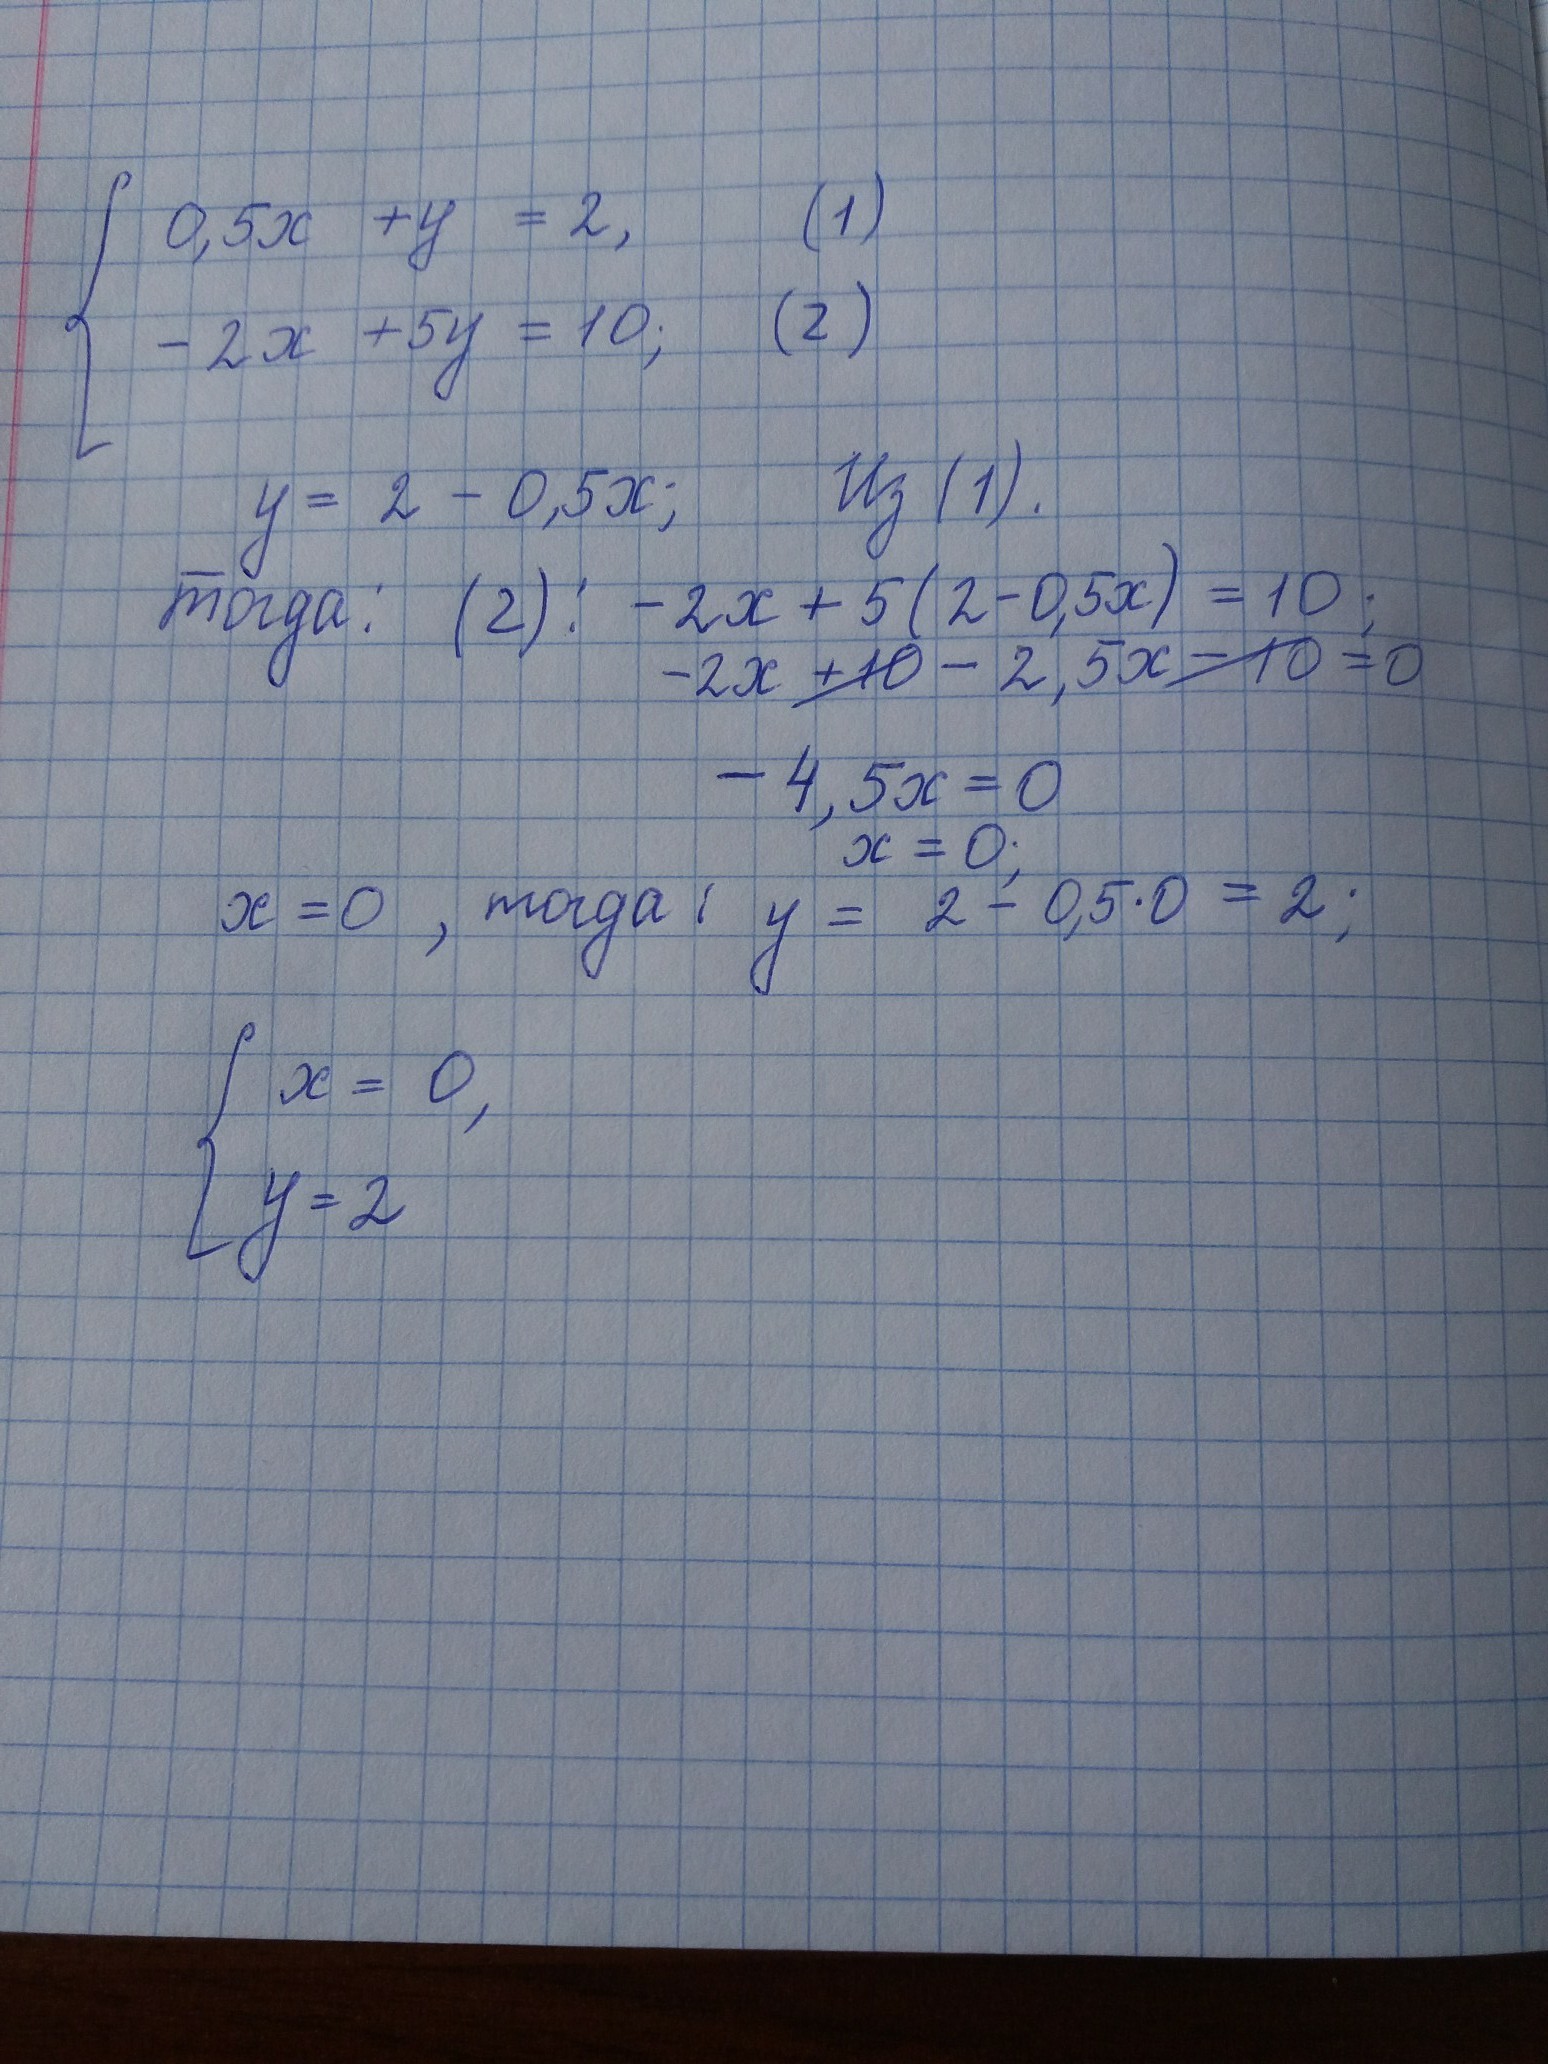 0,5x + y = 2, (1)
-2x + 5y = 10; (2)
y = 2 - 0,5x; Из (1).
Тогда: (2): -2x + 5(2 - 0,5x) = 10;
-2x + 10 - 2,5x - 10 = 0
-4,5x = 0
x = 0;
x = 0, тогда: y = 2 - 0,5·0 = 2;
x = 0,
y = 2